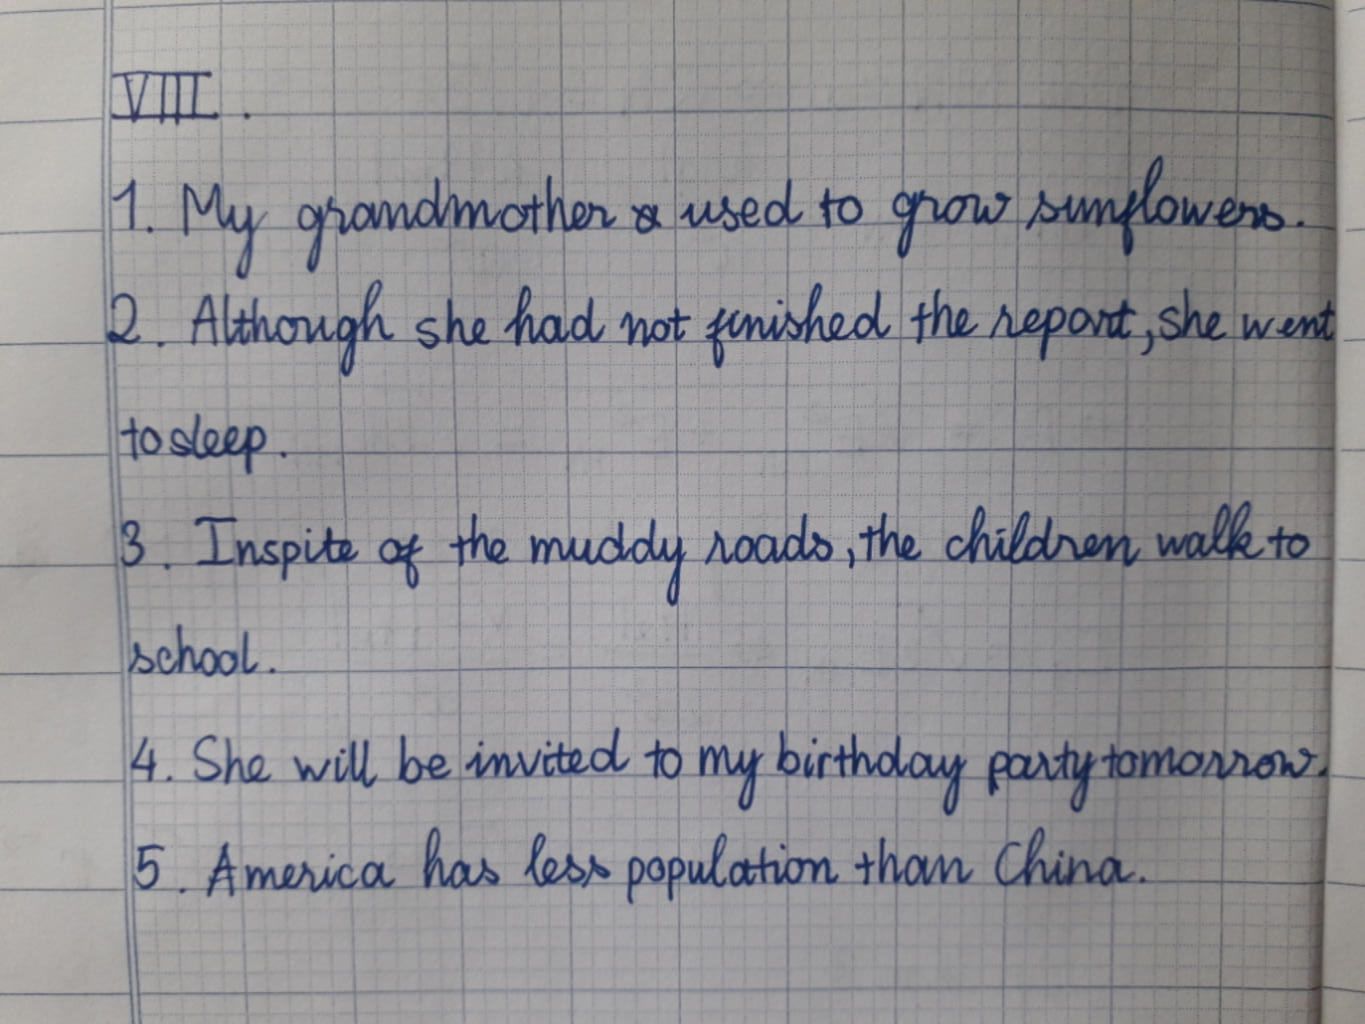 VIII.
1. My grandmother used to grow sunflowers.
2. Although she had not finished the report, she went
to sleep.
3. Inspite of the muddy roads, the children walk to
school.
4. She will be invited to my birthday party tomorrow.
5. America has less population than China.